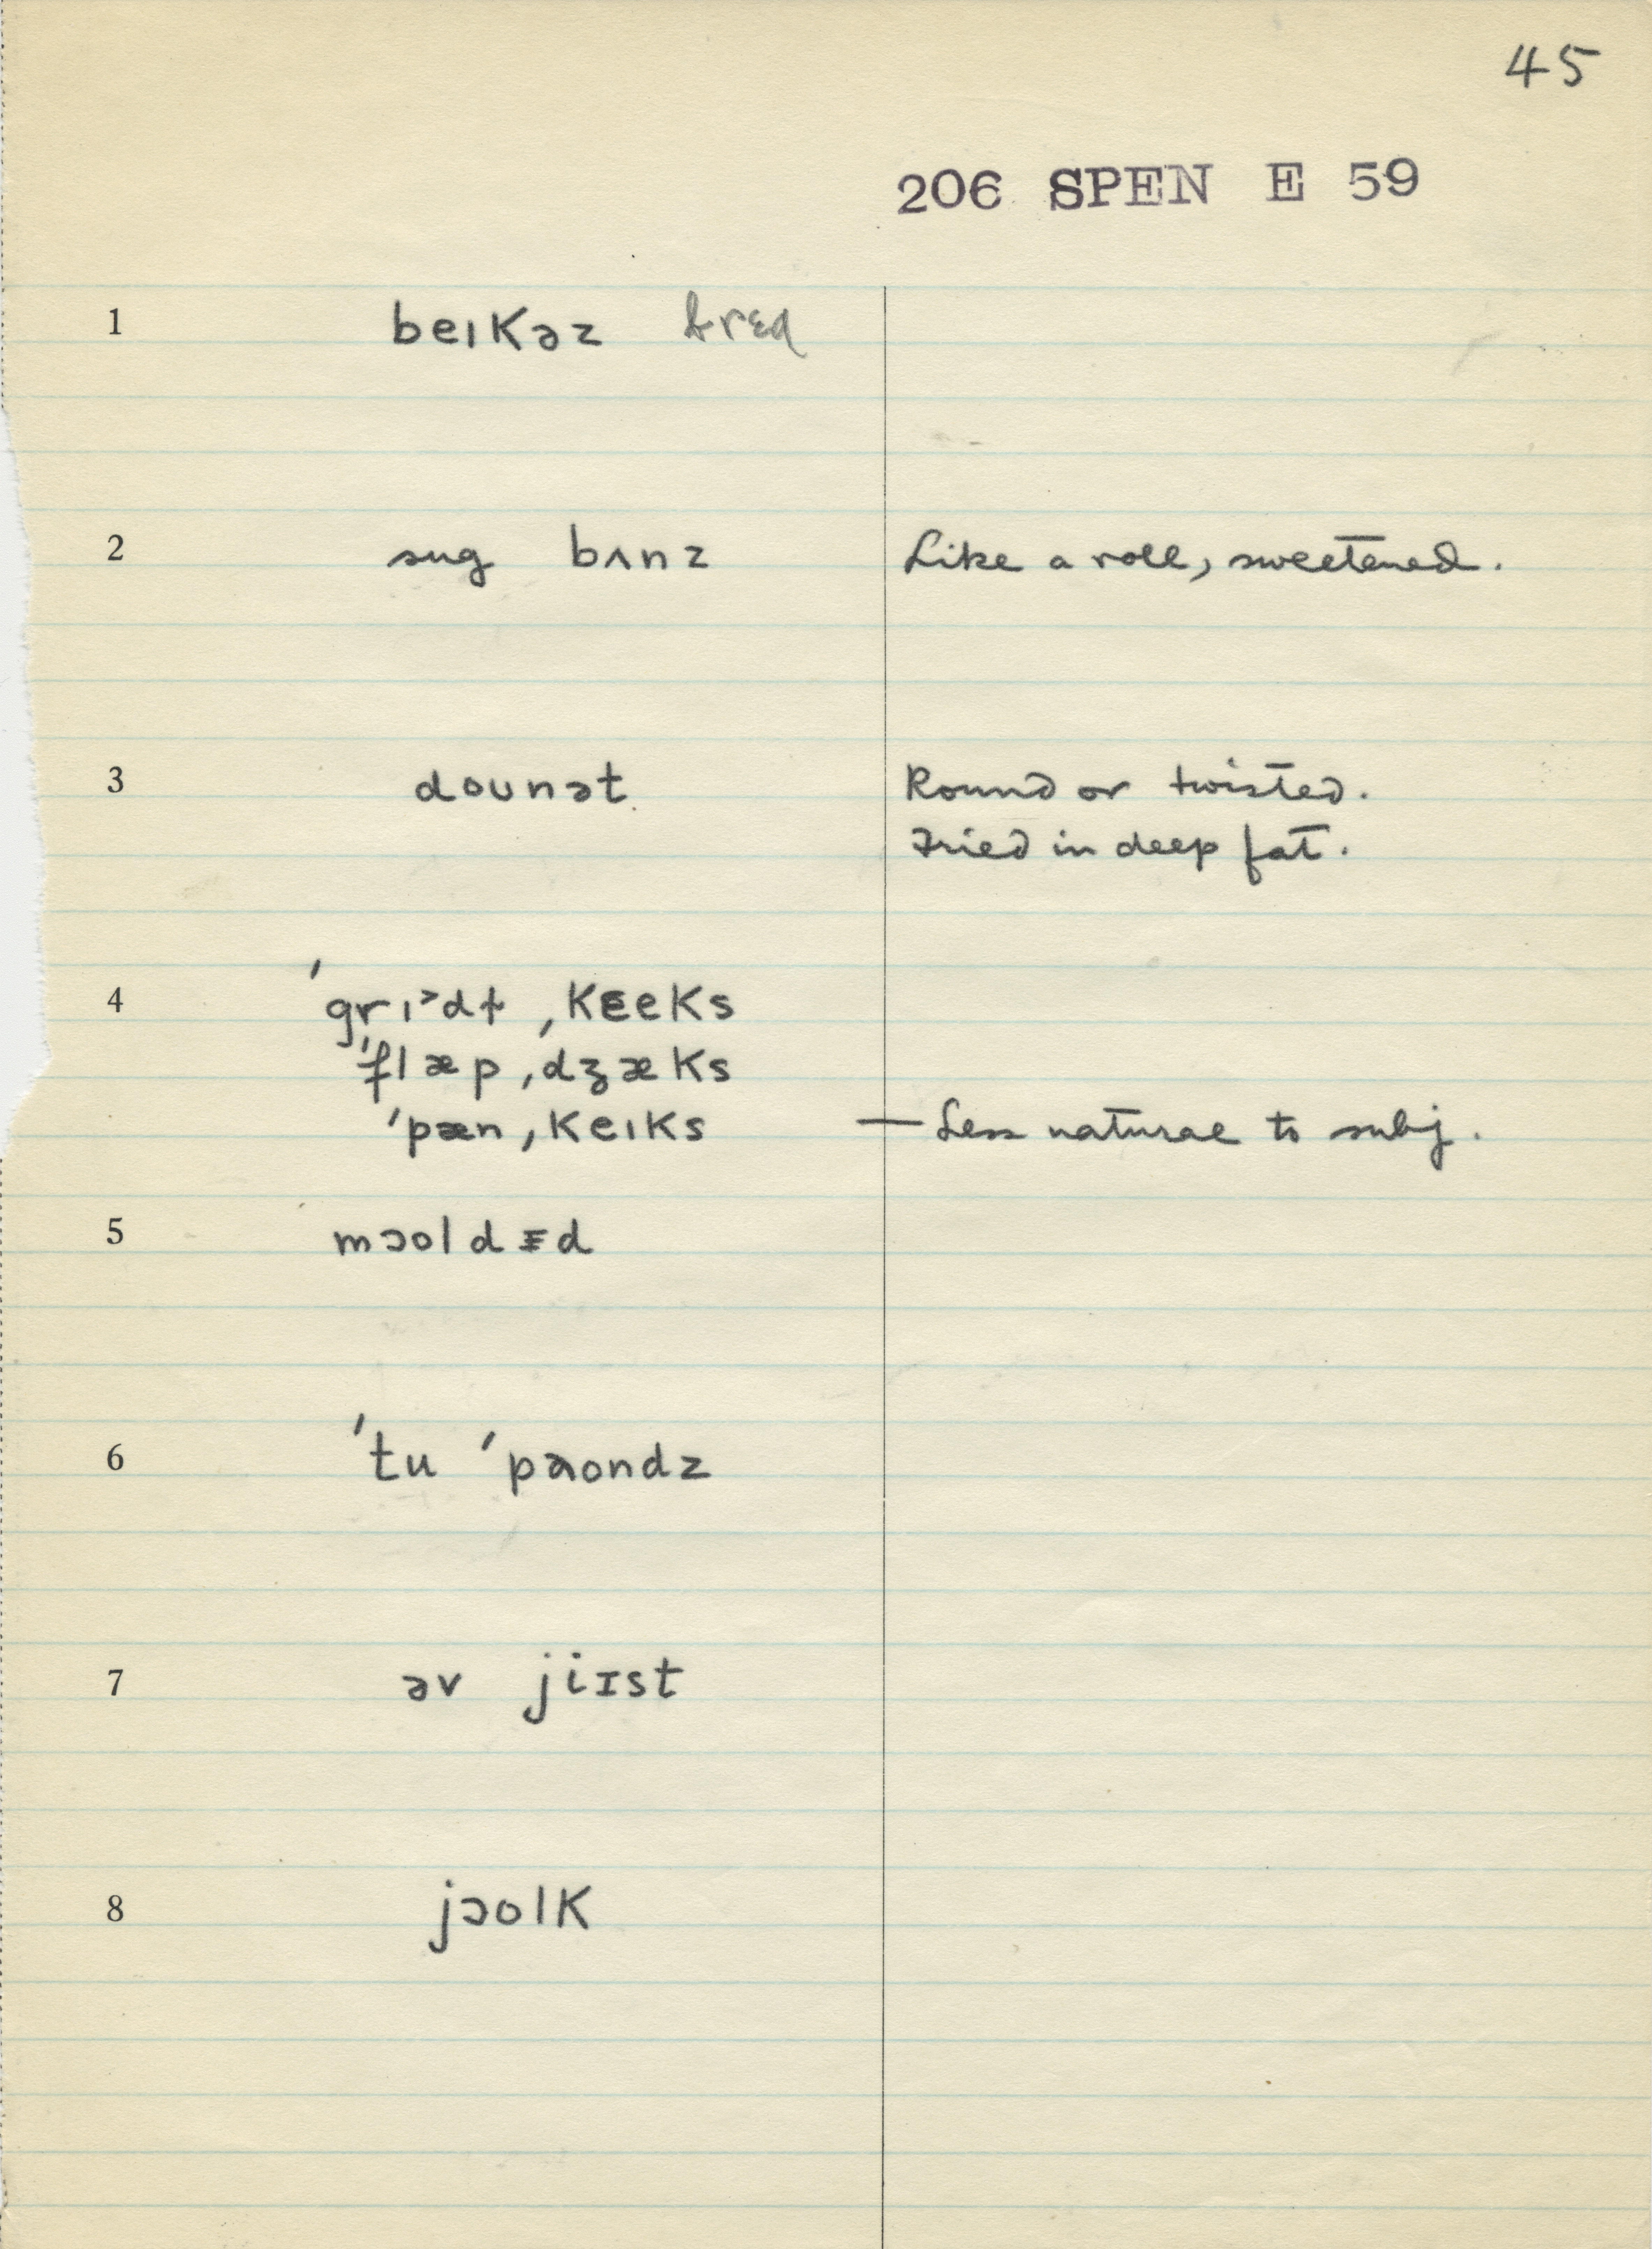 45
206 SPEN E 59
1 beıKəz bred
2 sug bʌnz Like a roll, sweetened.
3 doʊnət Round or twisted.
Fried in deep fat.
4 ˈgrɪ˃dɫ ˌKɛeKs
ˈflæp ˌdʒæKs
ˈpæn ˌKeıKs — Less natural to subj.
5 mɔoldɪd
6 ˈtu ˈpaondz
7 əv jiɪst
8 jɔolK